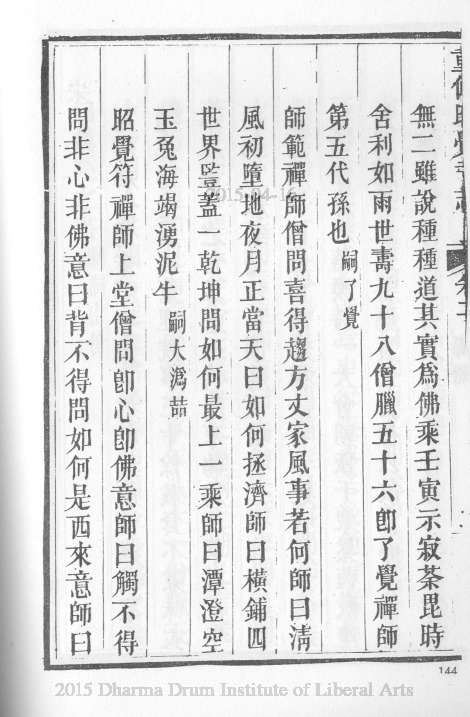 重修昭覺寺志
無二雖說種種道其實爲佛乘壬寅示寂荼毘時
舍利如雨世壽九十八僧臘五十六卽了覺禪師
第五代孫也 嗣了覺
師範禪師僧問喜得趨方丈家風事若何師曰淸
風初墮地夜月正當天曰如何拯濟師曰橫鋪四
世界豎蓋一乾坤問如何最上一乘師曰潭澄空
玉兔海竭湧泥牛 嗣大潙喆
昭覺符禪師上堂僧問卽心卽佛意師曰觸不得
問非心非佛意曰背不得問如何是西來意師曰
2015-04-16
144
2015 Dharma Drum Institute of Liberal Arts